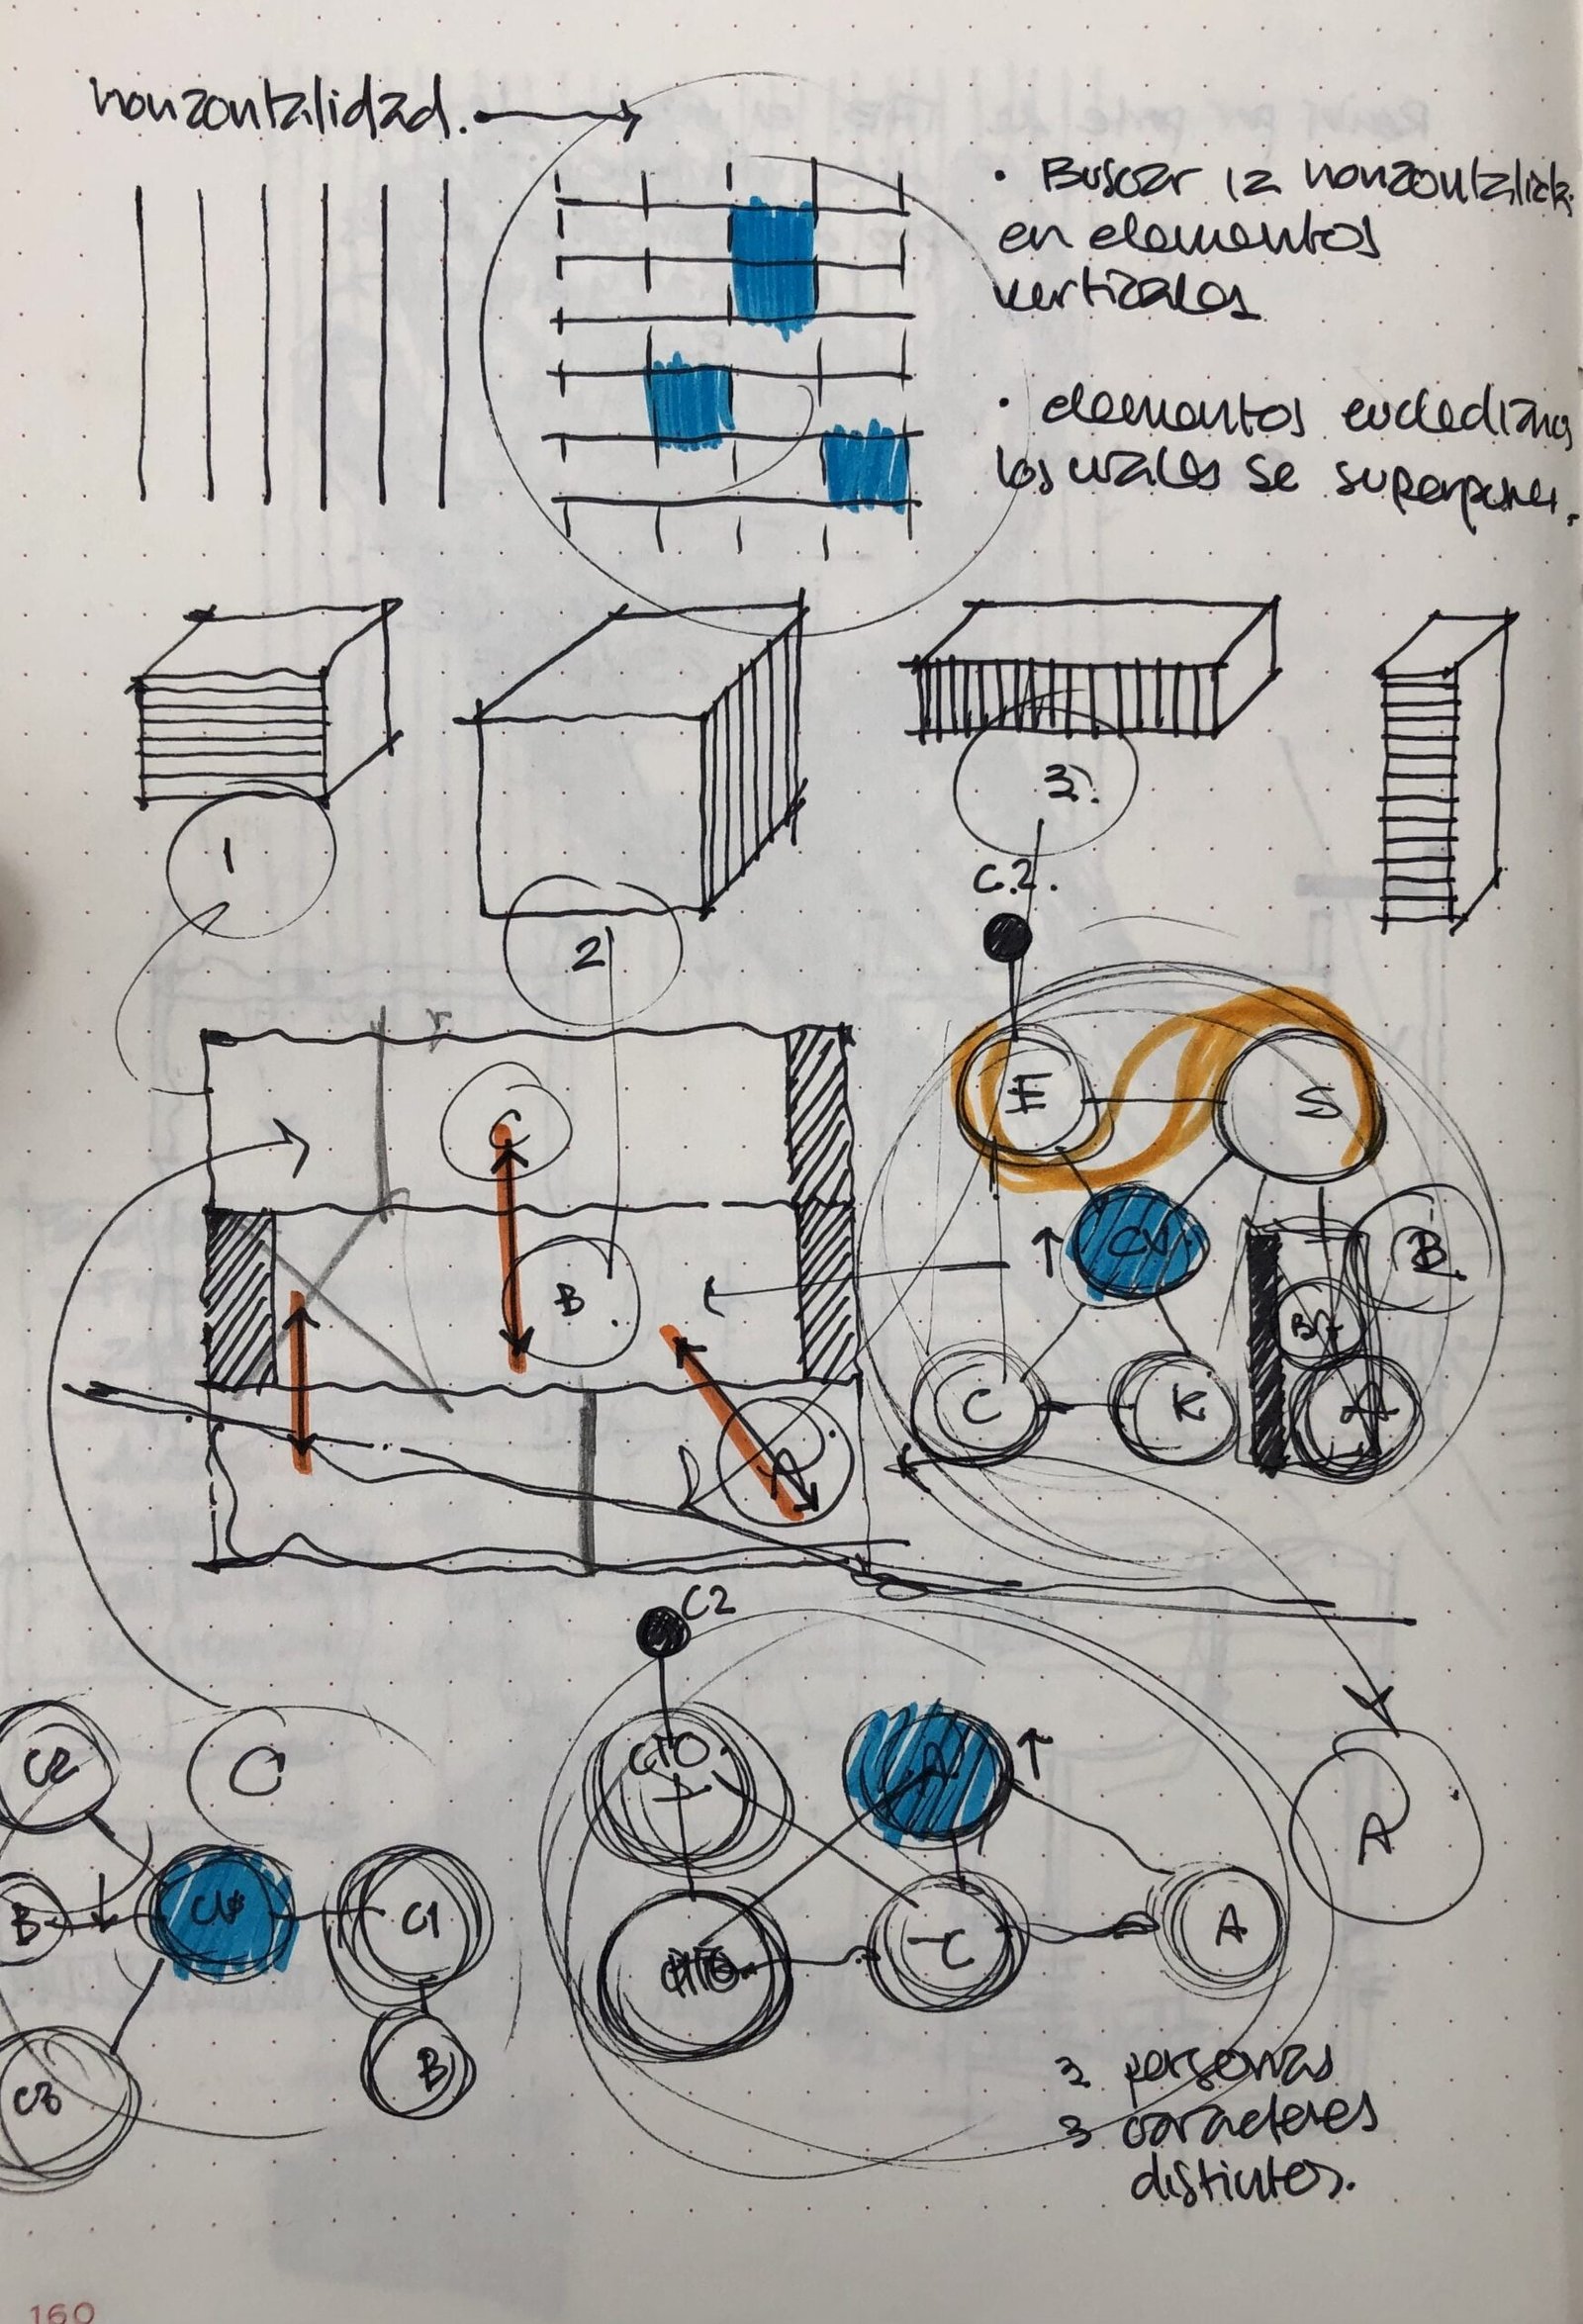 horizontalidad.
• Buscar la horizontalid
en elementos
verticales
• elementos eucledianos
los cuales se superponen.
1
2
3.
C.2.
E
S
C
CV
B
B.
C
K
A
C2
C2
C
A
B
CV
C1
C
A
C3
B
3 caracteres
distintos.
160